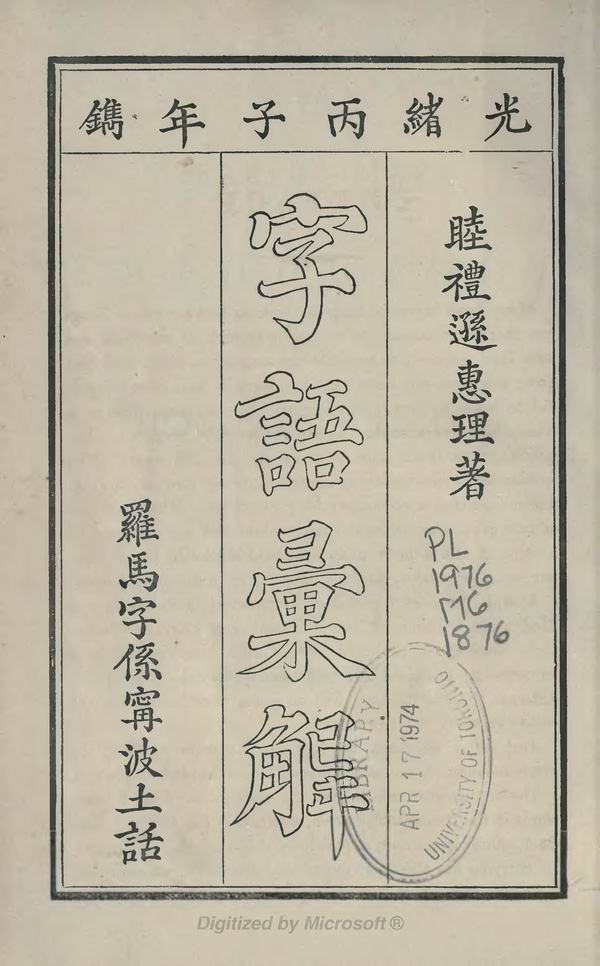 光緒丙子年鐫
睦禮遜惠理著
字語彙解
羅馬字係甯波土話
PL
1976
M6
1876
LIBRARY
APR 17 1974
UNIVERSITY OF TORONTO
Digitized by Microsoft ®